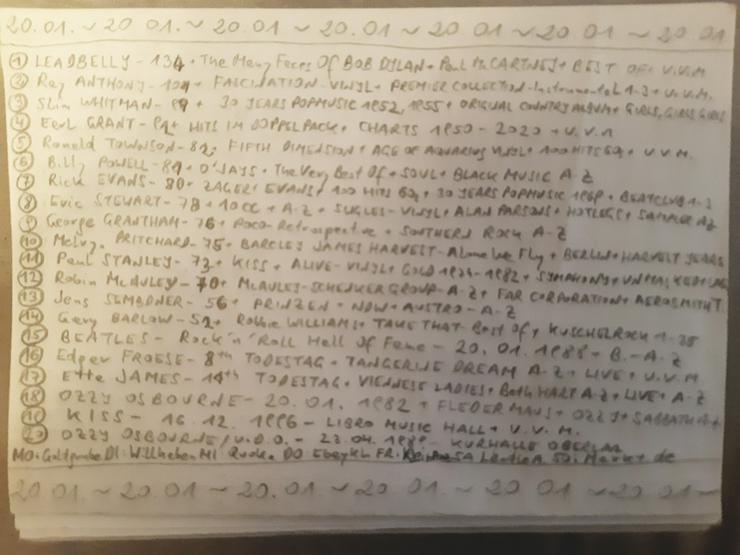 20.01. ~ 20 01. ~ 20.01 ~ 20.01 ~ 20.01 ~ 20 01 ~ 20 01 ~ 20 01
① LEADBELLY - 134 + The Many Faces Of BOB DYLAN + Paul McCARTNEY + BEST OF + U.V.M
② Ray ANTHONY - 104 + FASCINATION - VINYL + PREMIER COLLECTION - Instrumental 1-3 + U.V.M.
③ Slim WHITMAN - 99 + 30 YEARS POPMUSIC 1952, 1955 + ORIGINAL COUNTRY ALBUM + GIRLS, GIRLS GIRLS
④ Earl GRANT - 92 + HITS IM DOPPELPACK + CHARTS 1950 - 2020 + U.V.M
⑤ Ronald TOWNSON - 82 + FIFTH DIMENSION + AGE OF AQUARIUS VINYL + 100 HITS 60s + U.V.M.
⑥ Billy POWELL - 89 + O'JAYS + The Very Best Of + SOUL + BLACK MUSIC A-Z
⑦ Rick EVANS - 80 + ZAGER + EVANS + 100 HITS 60s + 30 YEARS POPMUSIC 1969 + BEATCLUB 1-3
⑧ Eric STEWART - 78 + 10CC + A-Z + SINGLES - VINYL + ALAN PARSONS + HOTLEGS + SAMPLER AZ
⑨ George GRANTHAM - 76 + POCO - Retrospective + SOUTHERN ROCK A-Z
⑩ Melvyn PRITCHARD - 75 + BARCLEY JAMES HARVEST - Alone We Fly + BERLIN + HARVEST YEARS
11 Paul STANLEY - 72 + KISS + ALIVE - VINYL + GOLD 1974 - 1982 + SYMPHONY + UNMASKED
12 Robin McAULEY - 70 + McAULEY - SCHENKER GROUP - A-Z + FAR CORPORATION + AEROSMITH T.
13 Jens SEMBDNER - 56 + PRINZEN + NDW + AUSTRO - A-Z
14 Gary BARLOW - 52 + Robbie WILLIAMS + TAKE THAT - Best Of + KUSCHELROCK 1-25
15 BEATLES - Rock'n'Roll Hall Of Fame - 20. 01. 1988 + B. - A-Z
16 Edgar FROESE - 8th TODESTAG + TANGERINE DREAM A-Z + LIVE + U.V.M
17 Etta JAMES - 11th TODESTAG + VIENNESE LADIES + Beth HART A-Z + LIVE + A-Z
18 OZZY OSBOURNE - 20. 01. 1982 + FLEDERMAUS + OZZY + SABBATH A-Z
19 KISS - 16. 12. 1996 - LIBRO MUSIC HALL + U.V.M.
20 OZZY OSBOURNE / U.D.O. - 22.04. 1989 - KURHALLE OBERLAA
MO: Goldgrube DI: MI DO FR. SA SO: de
20 01. ~ 20 01 ~ 20.01 ~ 20.01 ~ 20 01 ~ 20 01 ~ 20 01